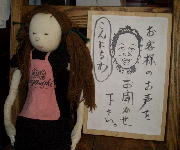 お客様のお声を
お聞かせ
下さい。
こんにちわ